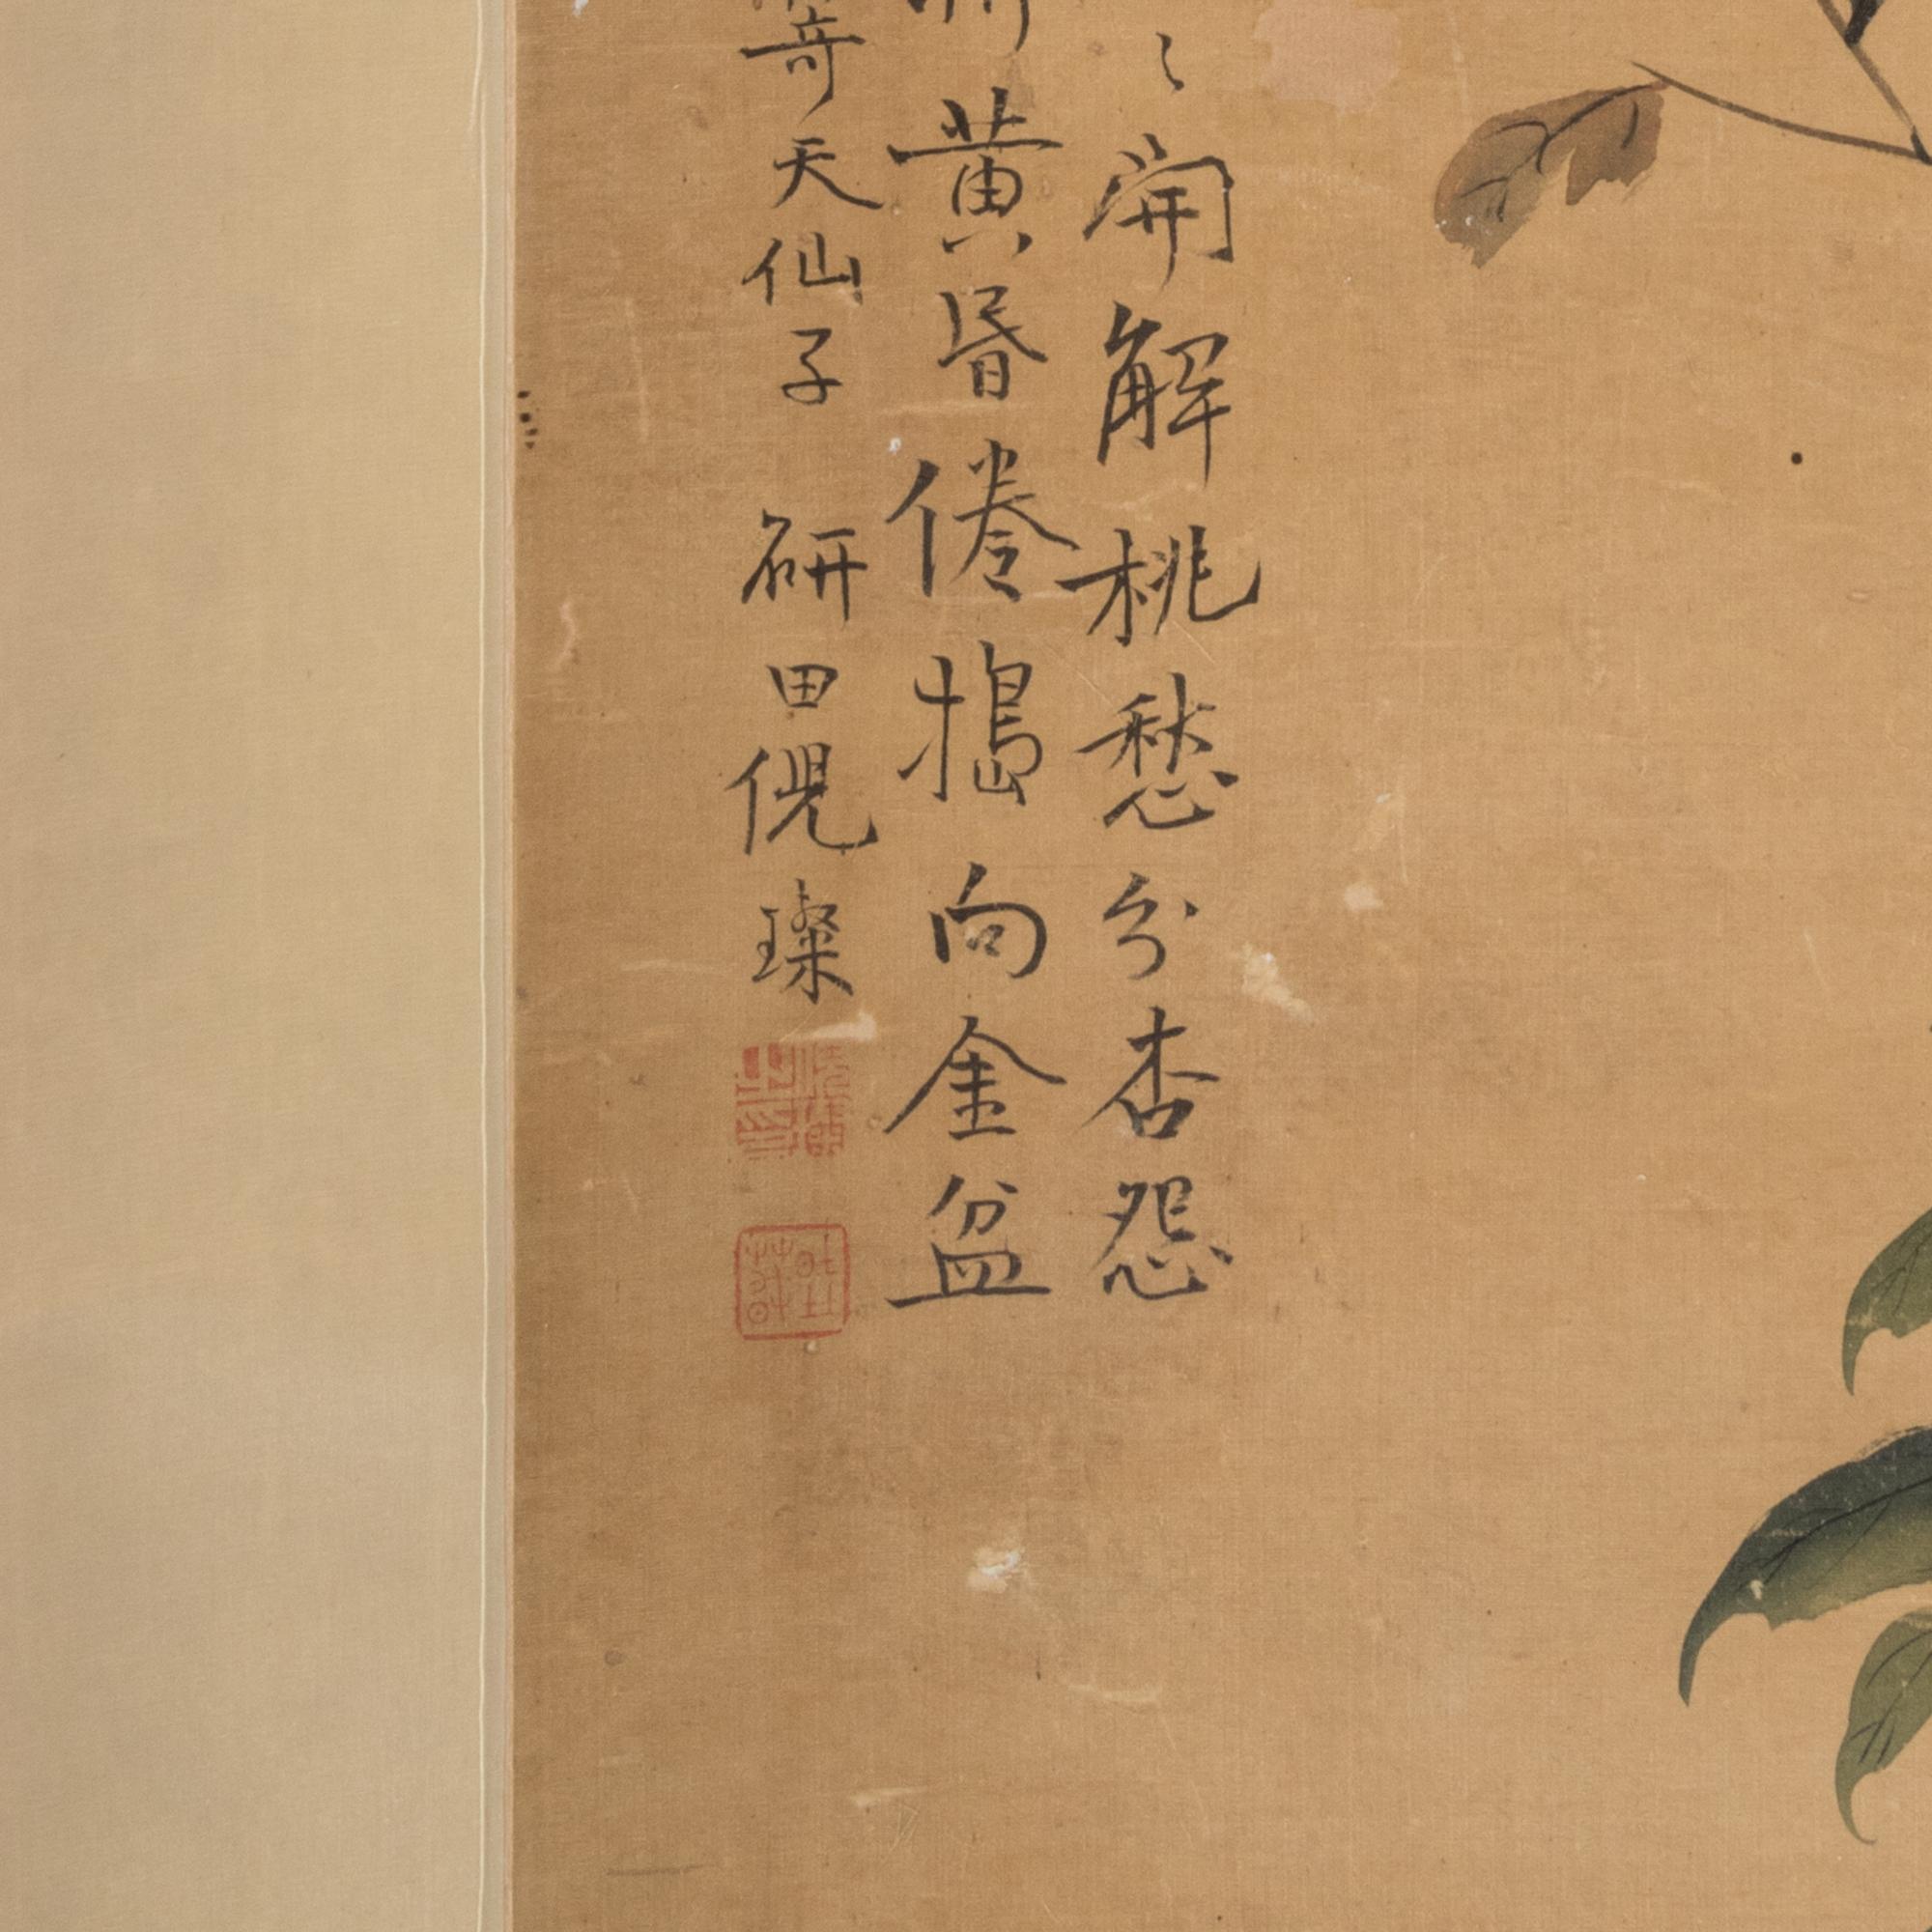 〻開解桃愁分杏怨
黄昏倦搗向金盆
寄天仙子 研田倪璨